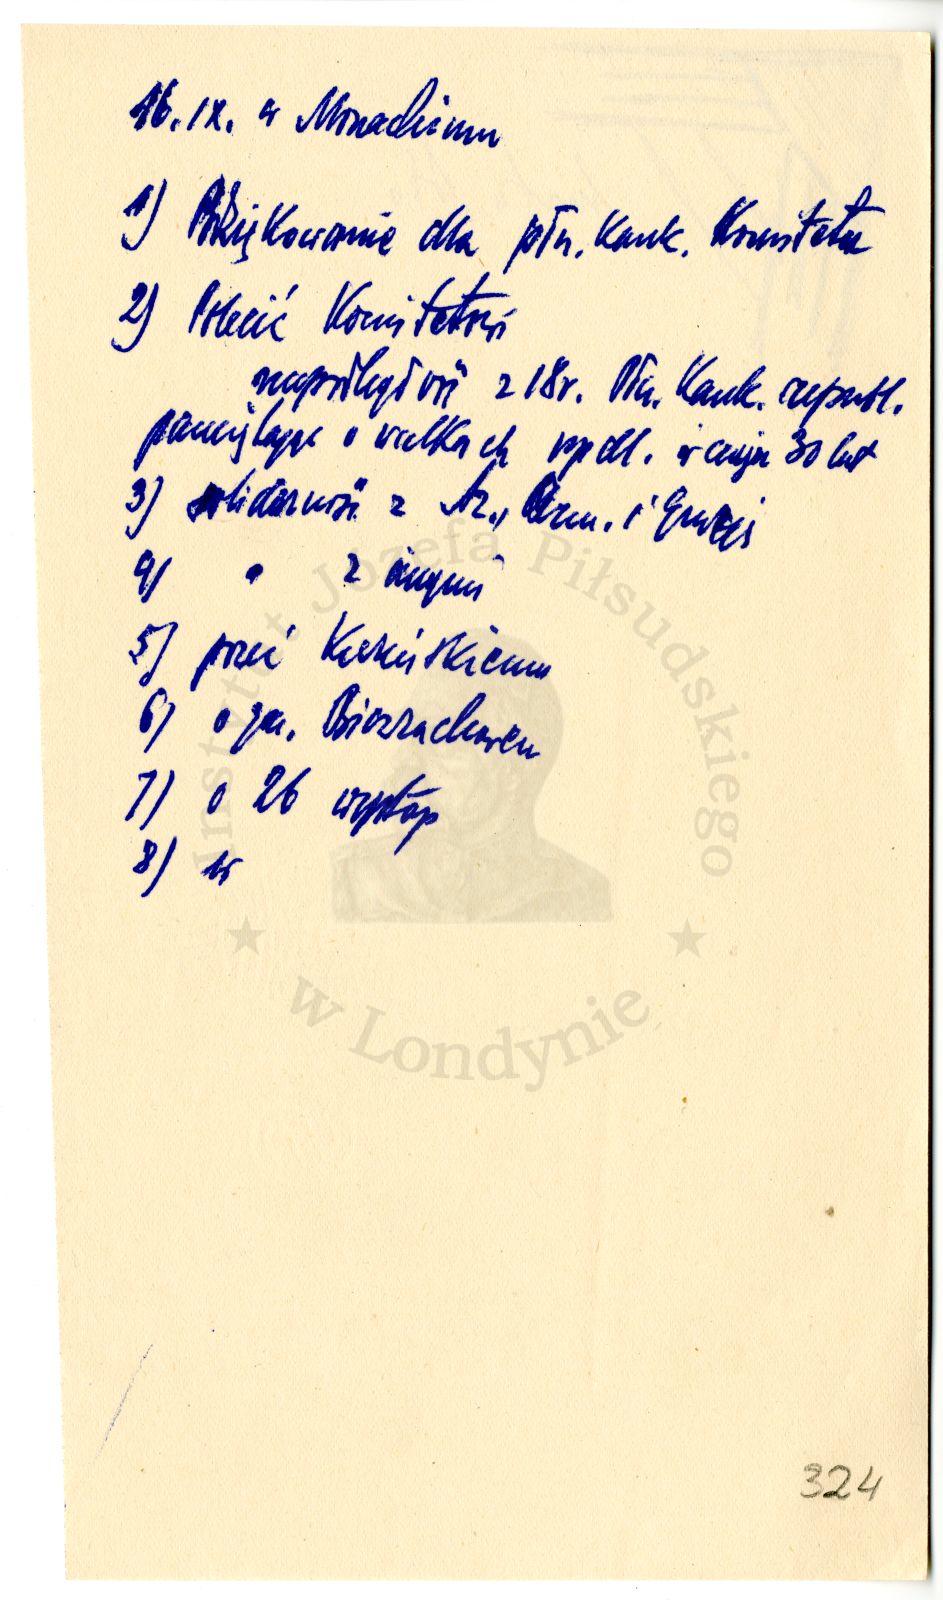 16.IX. w Monachium
1) Podziękowanie dla płn. Kauk. Komitetu
2) Polecić Komitetowi
niepodległość z 18r. Płn. Kauk. republ.
pamiętając o walkach npdl. w ciągu 30 lat
3) solidarność z Az., Orm. i Gruzją
4) " z innymi
5) przec
6) o gen. Bicherachowem
7) o 26
8) w
Instytut Józefa Piłsudskiego
w Londynie
324